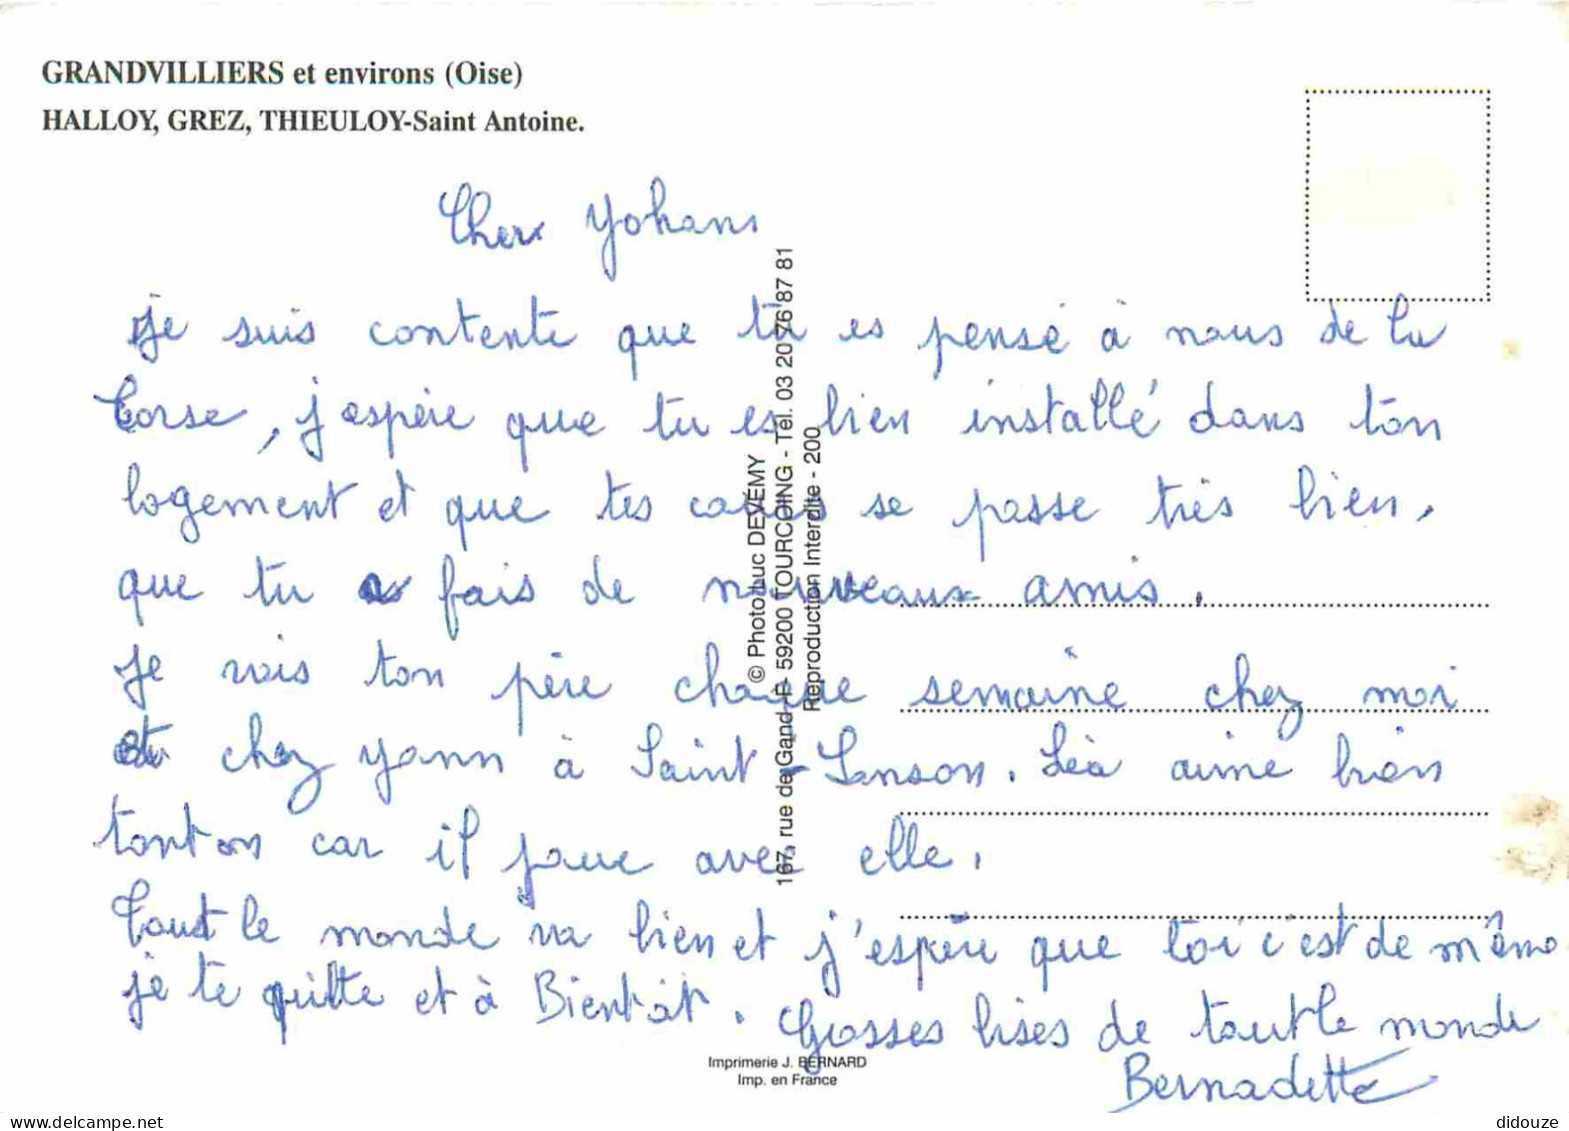 GRANDVILLIERS et environs (Oise)
HALLOY, GREZ, THIEULOY-Saint Antoine.
Cher Yohann
Je suis contente que tu es pensé à nous de la
Corse, j'espère que tu es bien installé dans ton
logement et que tes cours se passe très bien,
que tu fais de nouveaux amis.
Je vois ton père chaque semaine chez moi
et chez Yann à Saint-Sanson. Léa aime bien
tonton car il joue avec elle.
Tout le monde va bien et j'espère que toi c'est de même
je te quitte et à Bientôt. Grosses bises de tout le monde
Bernadette
© Photo Luc DEVÉMY
167, rue de Gand - F- 59200 TOURCOING - Tél. 03 20 76 87 81
Reproduction Interdite - 200
Imprimerie J. BERNARD
Imp. en France
didouze